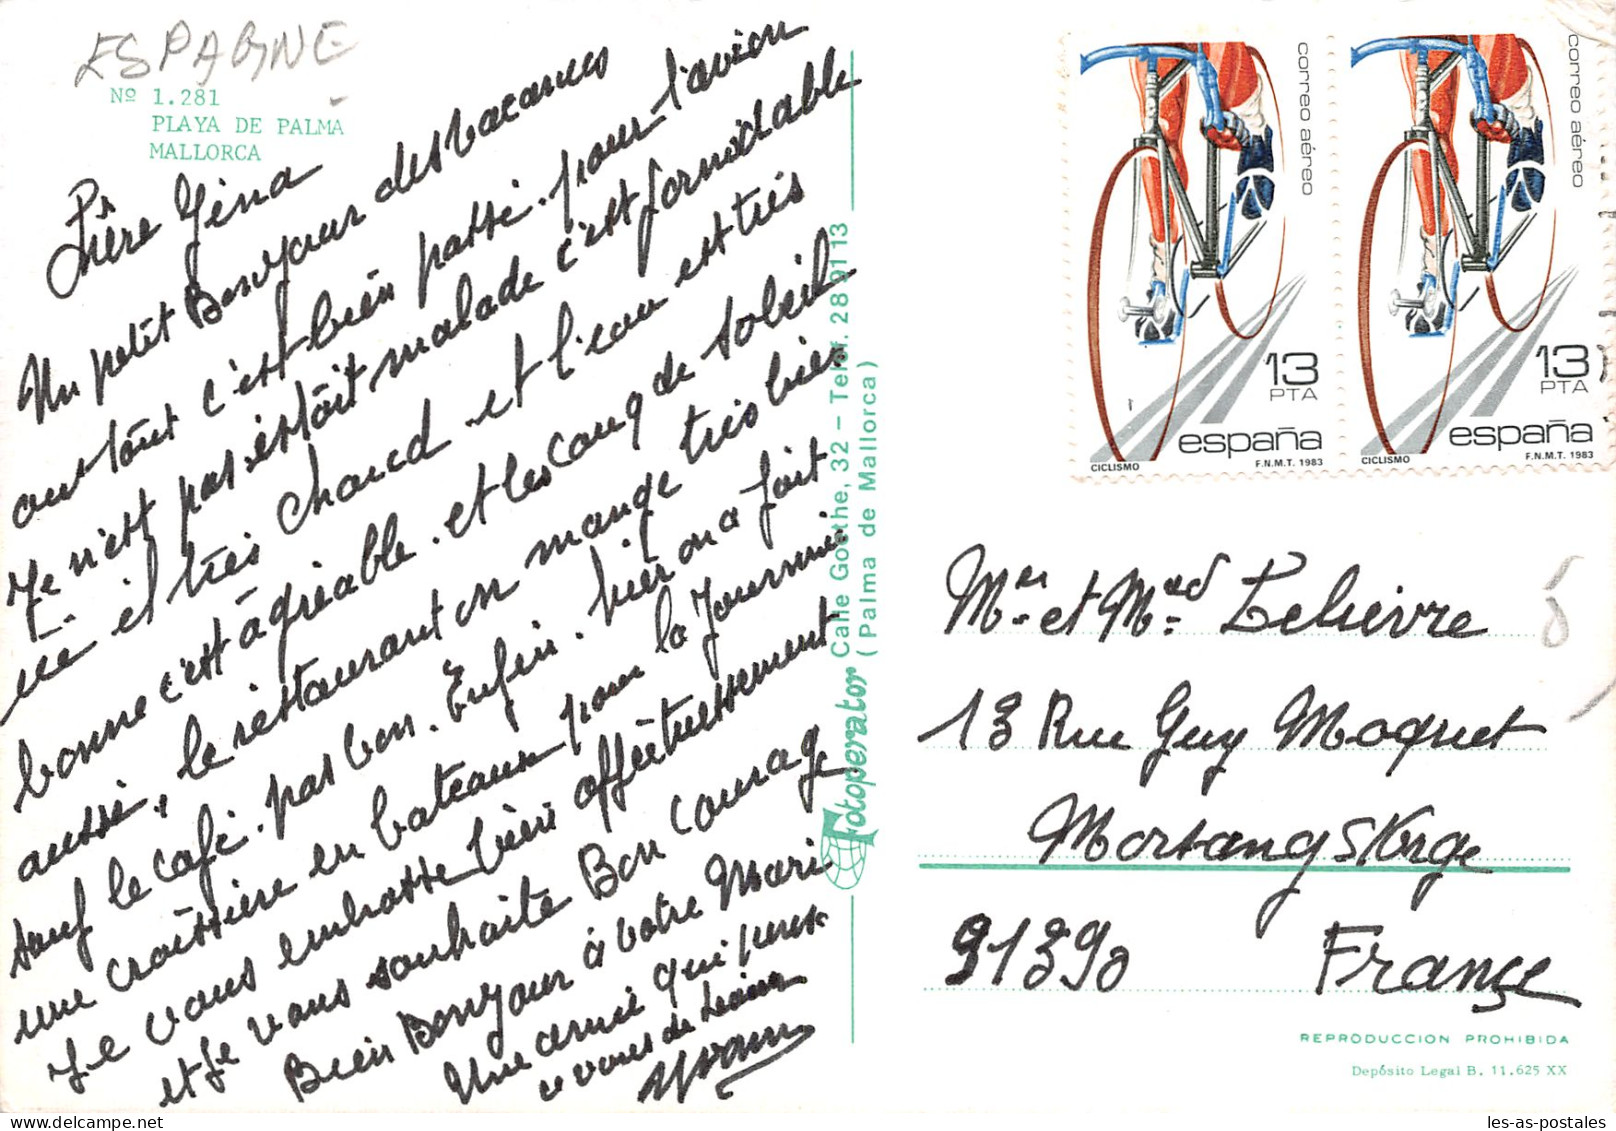 ESPAGNE
Nº 1.281
PLAYA DE PALMA
MALLORCA
Chère Gina
Un petit Bonjour des vacances
c'est bien passé. pour l'avion
Je n'est pas était malade c'est formidable
il très chaud et l'eau est très
bonne c'est agréable. et les coup de soleil
aussi, le restaurant on mange très bien
sauf le café. pas bon. Enfin. hier on a fait
une croissière en bateaux pour la journnée
Je vous embrasse bien affectueusement
et Je vous souhaite Bon Courage
Bien Bonjour à votre Mari
Une amie qui pense
a vous de loin
Yvan
Fotoperator Calle Goethe, 32 - Telef. 28 91 13
(Palma de Mallorca)
correo aéreo
13
PTA
españa
CICLISMO
F.N.M.T. 1983
correo aéreo
13
PTA
españa
CICLISMO
F.N.M.T. 1983
Mer et Med Lelievre
13 Rue Guy Moquet
Morsang S/Orge
91390 France
REPRODUCCION PROHIBIDA
Depósito Legal B. 11.625 XX
les-as-postales